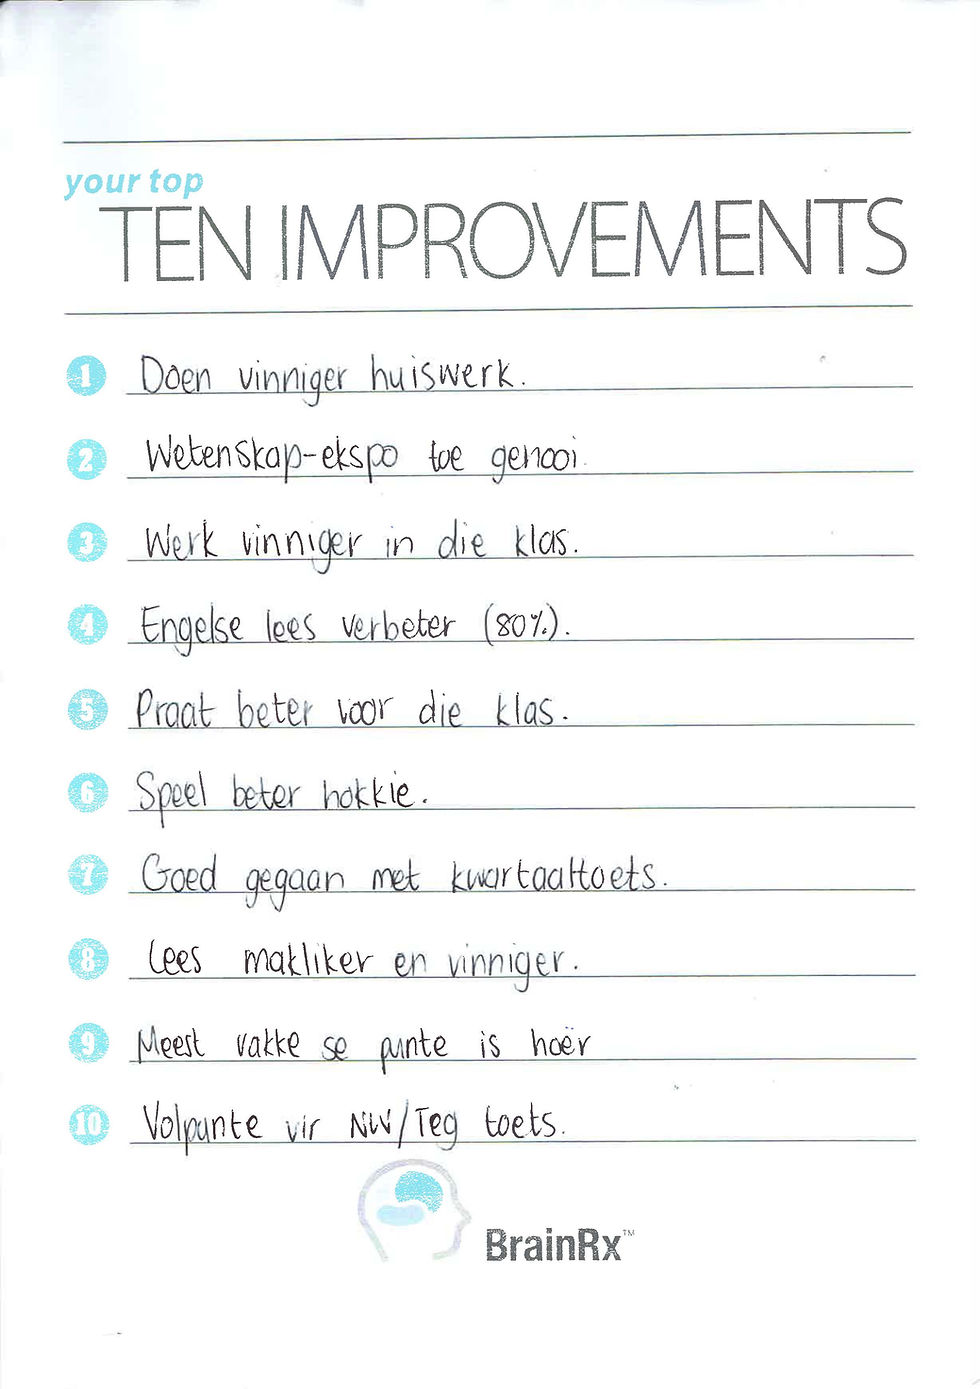 your top
TEN IMPROVEMENTS
1 Doen vinniger huiswerk.
2 Wetenskap-ekspo toe genooi
3 Werk vinniger in die klas.
4 Engelse lees verbeter (80%).
5 Praat beter voor die klas.
6 Speel beter hokkie.
7 Goed gegaan met kwartaaltoets.
8 Lees makliker en vinniger.
9 Meest vakke se punte is hoër
10 Volpunte vir NW/Teg toets.
BrainRx™